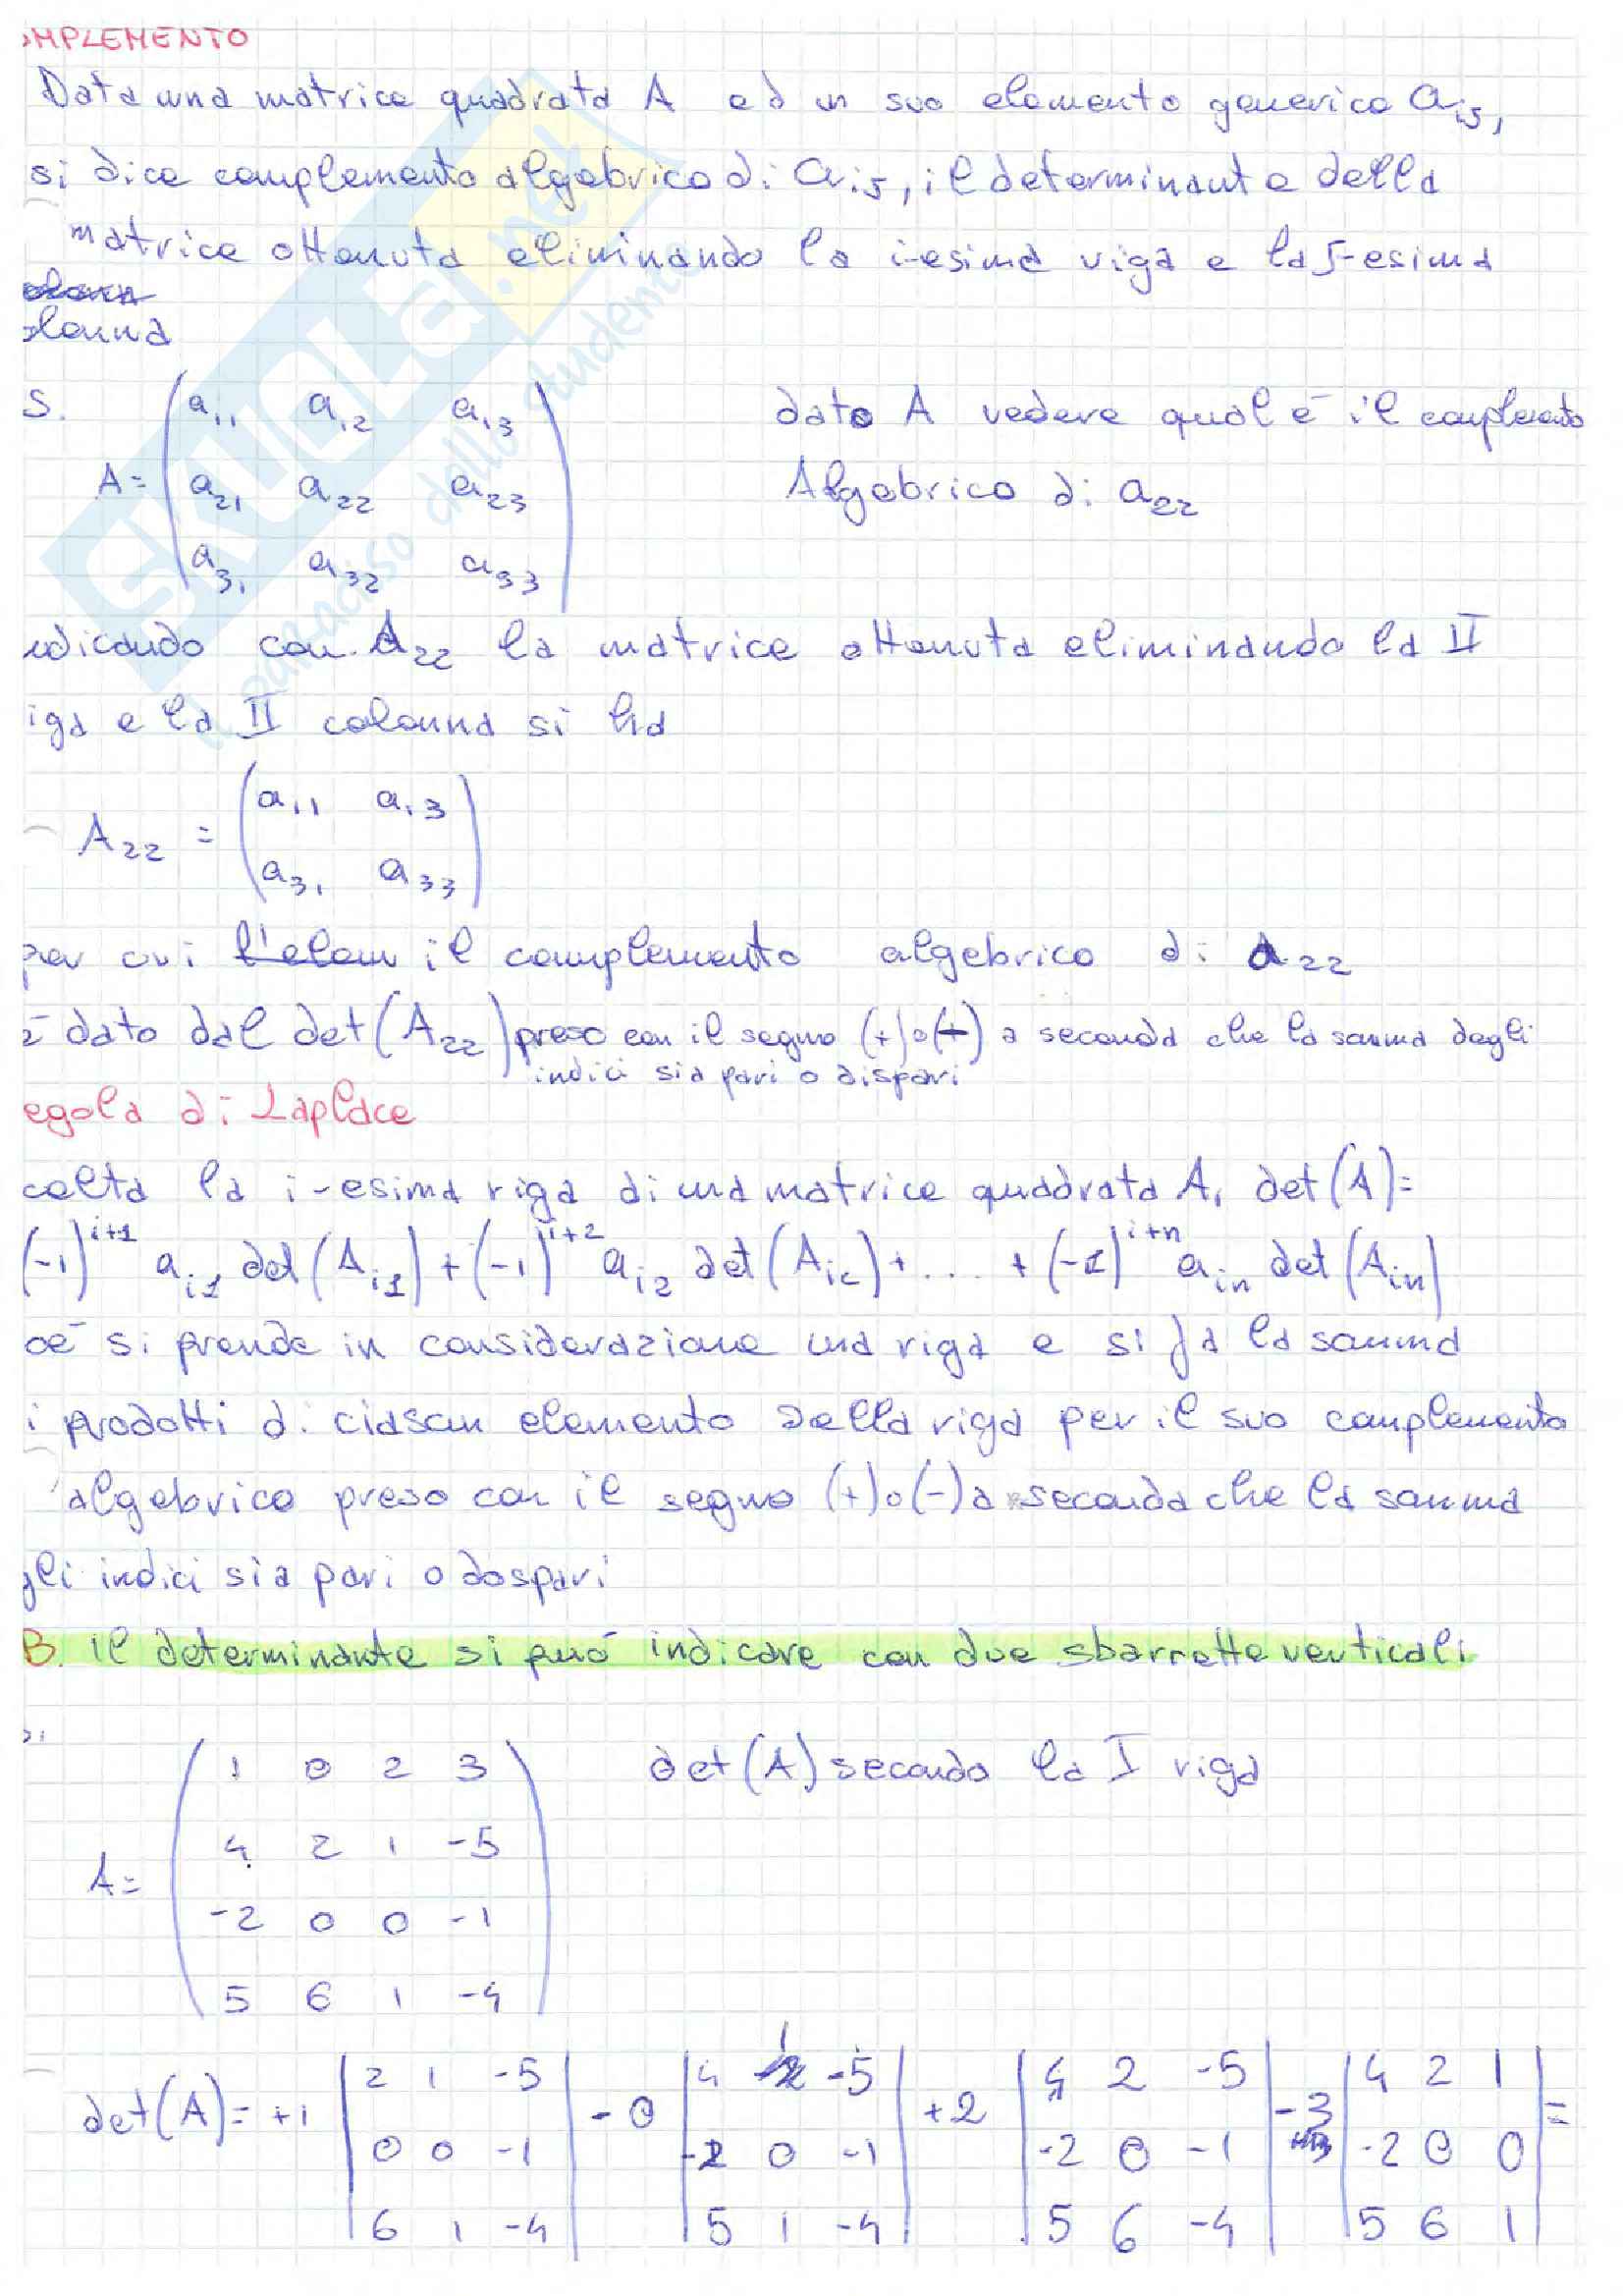 OMPLEMENTO
Data una matrice quadrata A ed un suo elemento generico aij,
si dice complemento algebrico di aij, il determinante della
matrice ottenuta eliminando la i-esima riga e la j-esima
olonna
S.
A= ( a11 a12 a13
a21 a22 a23
a31 a32 a33 )
dato A vedere qual è il complemento
Algebrico di a22
ndicando con A22 la matrice ottenuta eliminando la II
iga e la II colonna si ha
A22 = ( a11 a13
a31 a33 )
per cui l'elem il complemento algebrico di a22
è dato dal det(A22) preso con il segno (+) o (-) a seconda che la somma degli
indici sia pari o dispari
egola di Laplace
celta la i-esima riga di una matrice quadrata A, det(A)=
(-1)^i+1 ai1 det(Ai1) + (-1)^i+2 ai2 det(Ai2) + ... + (-1)^i+n ain det(Ain)
oè si prende in considerazione una riga e si fa la somma
i prodotti di ciascun elemento della riga per il suo complemento
algebrico preso con il segno (+) o (-) a seconda che la somma
gli indici sia pari o dospari
B. il determinante si può indicare con due sbarrette verticali
A= ( 1 0 2 3
4 2 1 -5
-2 0 0 -1
5 6 1 -4 )
det(A) secondo la I riga
det(A)= +1 | 2 1 -5 | - 0 | 4 1 -5 | +2 | 4 2 -5 | -3 | 4 2 1 | =
| 0 0 -1 | | -2 0 -1 | | -2 0 -1 | | -2 0 0 |
| 6 1 -4 | | 5 1 -4 | | 5 6 -4 | | 5 6 1 |
SKUOLA.net
il paradiso dello studente